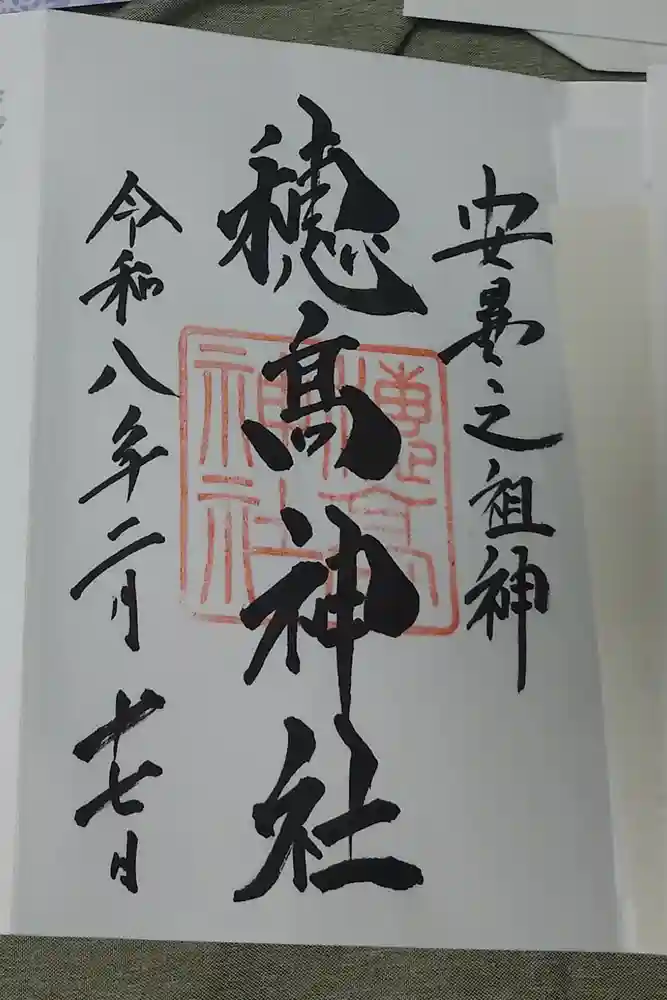 安曇之祖神
穂髙神社
穂高神社
令和八年二月十七日